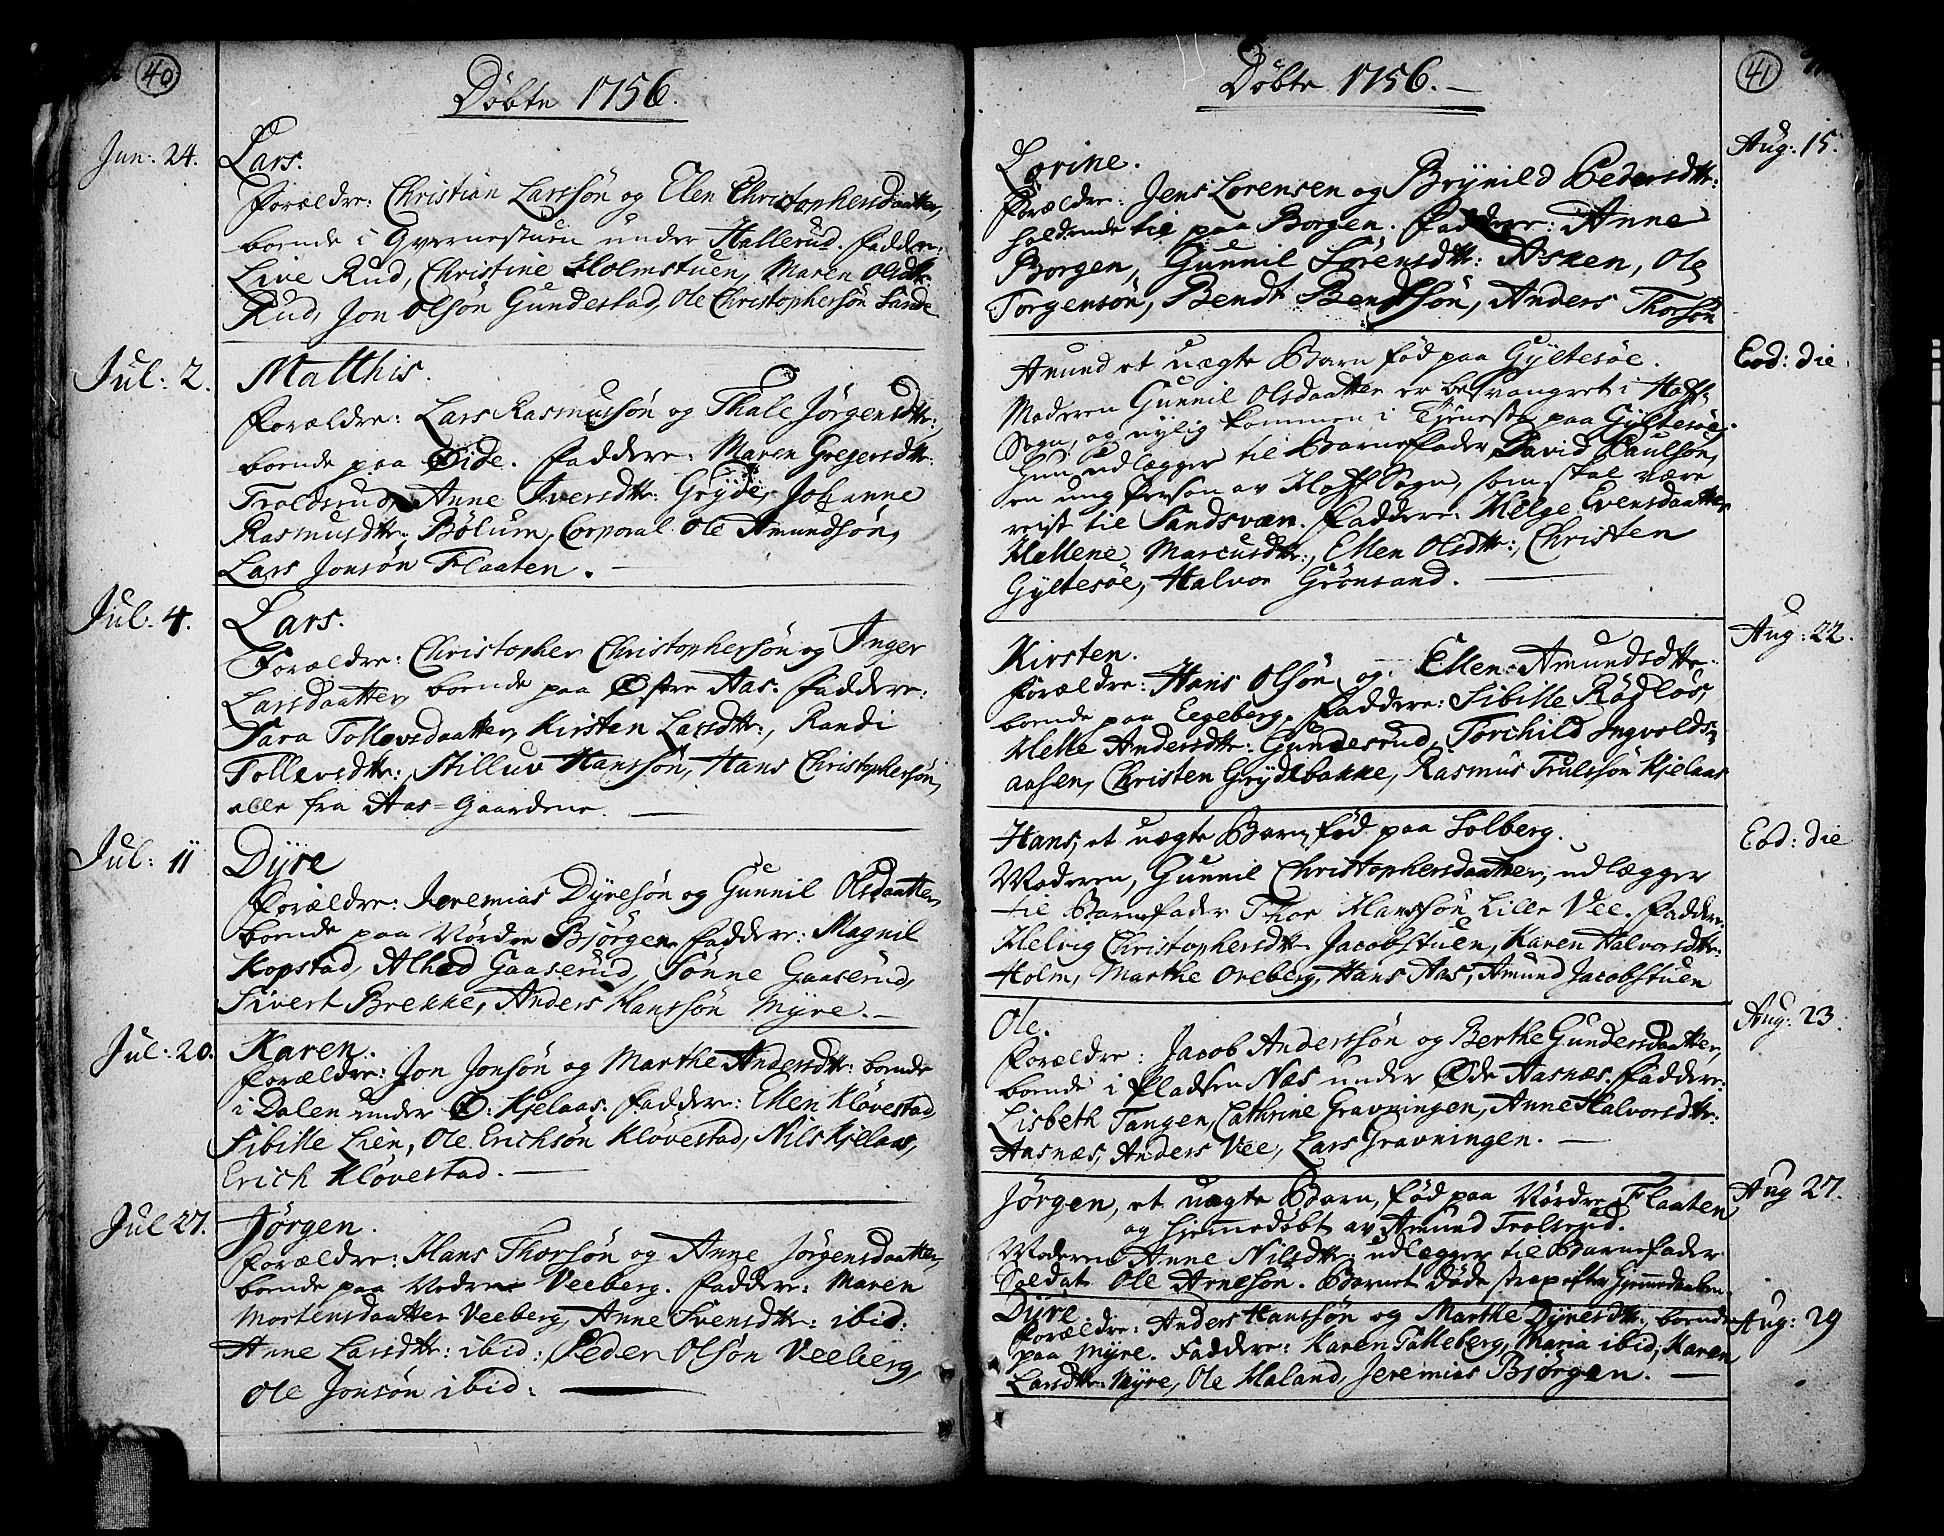 40
Döbte 1756.
Jun: 24.
Lars.
Forældre: Christian Larssön og Elen Christophersdaatter,
boende i Qvernestuen under Hallerud. Faddere:
Live Rud, Christine Holmstuen, Maren Olsdtr
Rud, Jon Olsön Gundestad, Ole Christophersön Sande
Jul: 2.
Matthis.
Forældre: Lars Rasmussön og Thale Jörgensdtr:,
boende paa Öide. Faddere: Maren Gregersdtr:
Troldsrud, Anne Iversdtr: Gryde, Johanne
Rasmusdtr: Bölum, Corporal Ole Amundsön,
Lars Jonsön Flaaten.
Jul: 4.
Lars.
Forældre: Christopher Christophersön og Inger
Larsdaatter, boende paa Östre Aas. Faddere:
Sara Tollevsdaatter, Kirsten Larsdtr:, Randi
Tollevsdtr:, Stilluv Hanssön, Hans Christophersön,
alle fra Aas-Gaardene.
Jul: 11
Dÿre
Forældre: Jeremias Dÿresön og Gunnil Olsdaatter,
boende paa Vördre Bjørgen. Faddere: Magnil
Kopstad, Alhed Gaaserud, Tönne Gaaserud,
Sivert Brekke, Anders Hanssön Mÿre.
Jul: 20.
Karen.
Forældre: Jon Jonsön og Marthe Andersdtr: boende
i Dalen under Ö: Kjelaas. Faddere: Ellen Klövestad,
Sibille Lien, Ole Erichsön Klövestad, Nils Kjelaas,
Erich Klövestad.
Jul 27.
Jörgen.
Forældre: Hans Thorsön og Anne Jörgensdaatter,
boende paa Vedre Veeberg. Faddere: Maren
Mortensdaatter Veeberg, Anne Svensdtr: ibid:
Anne Larsdtr: ibid: Peder Olsön Veeberg,
Ole Jonsön ibid:
41
Döbte 1756.
Aug: 15.
Lorine.
Forældre: Jens Lorensen og Brÿnild Pedersdtr:
holdende til paa Borgen. Faddere: Anne
Borgen, Gunnil Sörensdtr: Asken, Ole
Torgensön, Bendt Bendtsön, Anders Thorsön
Eod: die
Amund et uægte Barn fød paa Gÿltesöe.
Moderen Gunnil Olsdaatter er besvangret i Hoffs
Sogn, og nylig kommen i Tjeneste paa Gÿltesöe,
hun udlægger til Barnefader David Paulsön,
en ung Person av Hoff Sogn, som skal være
reist til Sandsvær. Faddere: Helge Evensdaatter,
Hellene Marcusdtr:, Ellen Olsdtr:, Christen
Gÿltesöe, Halvor Grönsand.
Aug: 22.
Kirsten.
Forældre: Hans Olsön og Ellen Amundsdtr:
boende paa Eegeberg. Faddere: Sibille Rödløs,
Helle Andersdtr: Gundesrud, Torchild Ingvolds-
aasen, Christen Grÿdebakke, Rasmus Trulssön Kjelaas
Eod: die
Hans, et uægte Barn, fød paa Solberg.
Moderen, Gunnil Christophersdaatter, udlægger
til Barnefader Thor Hanssön Lille Vee. Faddere:
Helvig Christophersdtr Jacobstuen, Karen Halvorsdtr:
Holm, Marthe Oreberg, Hans Aas, Amund Jacobstuen
Aug: 23.
Ole.
Forældre: Jacob Anderssön og Berthe Gundersdaatter,
boende i Pladsen Næs under Öde Aasnæs. Faddere:
Lisbeth Tangen, Cathrine Gravningen, Anne Halvorsdtr:
Aasnæs, Anders Vee, Lars Gravningen.
Aug 27.
Jörgen, et uægte Barn, fød paa Vördre Flaaten
og hjemmedøbt av Amund Trolsrud.
Moderen Anne Nilsdtr: udlægger til Barnefader
Soldat Ole Arnesön. Barnet døde strax efter Hjemmedaaben.
Aug: 29
Dÿre
Forældre: Anders Hanssön og Marthe Dÿresdtr:, boende
paa Mÿre. Faddere: Karen Talleberg, Maria ibid, Karen
Larsdtr: Mÿre, Ole Haland, Jeremias Bsörgen.